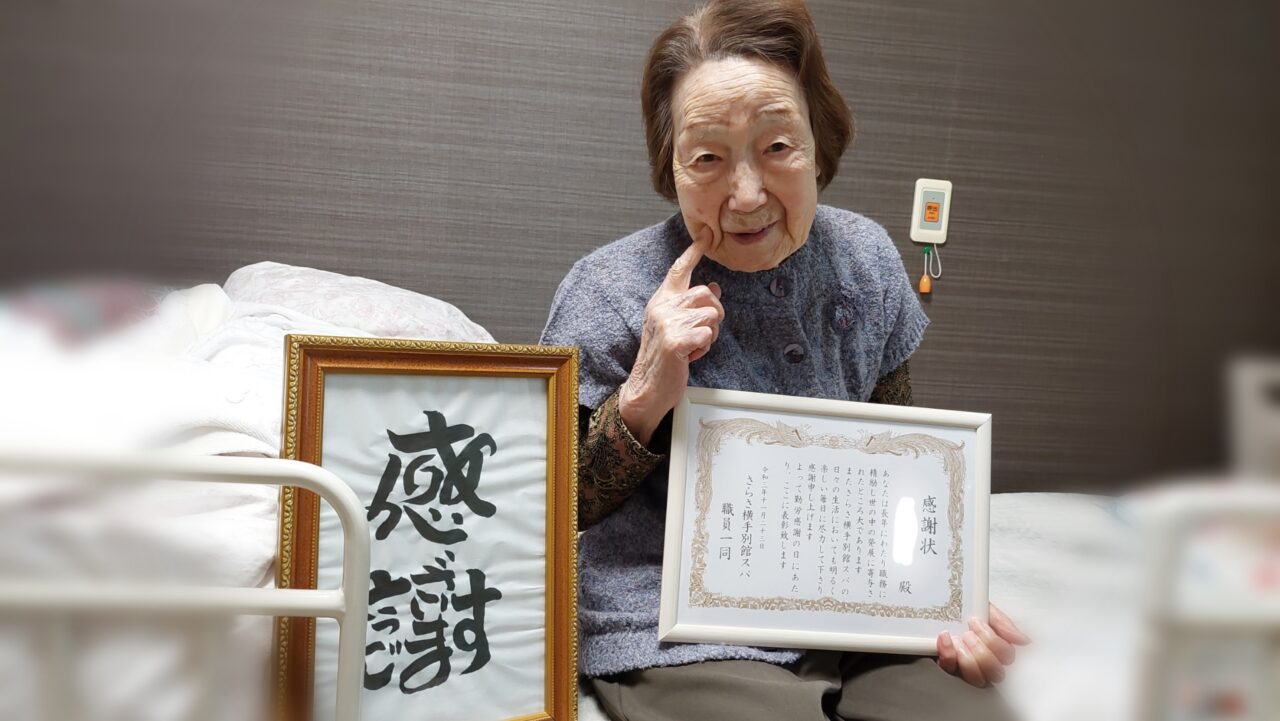 感謝
感謝状
殿
あなたは長年にわたり職務に
精励し世の中の発展に寄与さ
れたところ大であります
またさらさ横手別館スパの
日々の生活においても明るく
楽しい毎日に尽力して下さり
感謝申し上げます
よって勤労感謝の日にあた
り、ここに表彰致します
令和二年十一月二十三日
さらさ横手別館スパ
職員一同
呼出